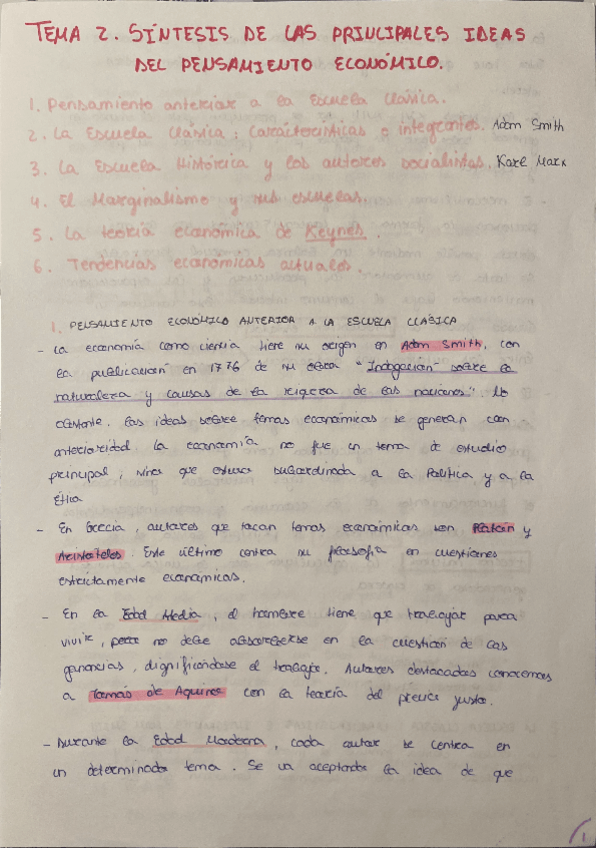 TEMA 2. SÍNTESIS DE LAS PRINCIPALES IDEAS
DEL PENSAMIENTO ECONÓMICO.
1. Pensamiento anterior a la Escuela Clásica.
2. La Escuela Clásica: características e integrantes. Adam Smith
3. La Escuela Histórica y los autores socialistas. Karl Marx
4. El Marginalismo y sus escuelas.
5. La teoría económica de Keynes.
6. Tendencias económicas actuales.
1. PENSAMIENTO ECONÓMICO ANTERIOR A LA ESCUELA CLÁSICA
- La economía como ciencia tiene su origen en Adam Smith, con
la publicación en 1776 de su obra "Indagación sobre la
naturaleza y causas de la riqueza de las naciones". No
obstante, las ideas sobre temas económicas se generan con
anterioridad. La economía no fue un tema de estudio
principal, sino que estuvo subordinada a la Política y a la
Ética
- En Grecia, autores que tocan temas económicas son Platón y
Aristóteles. Este último centra su filosofía en cuestiones
estrictamente económicas.
- En la Edad Media, el hombre tiene que trabajar para
vivir, pero no debe absorberse en la cuestión de las
ganancias, dignificándose el trabajo. Autores destacados conocemos
a Tomás de Aquino con la teoría del precio justo.
- Durante la Edad Moderna, cada autor se centra en
un determinado tema. Se va aceptando la idea de que
1